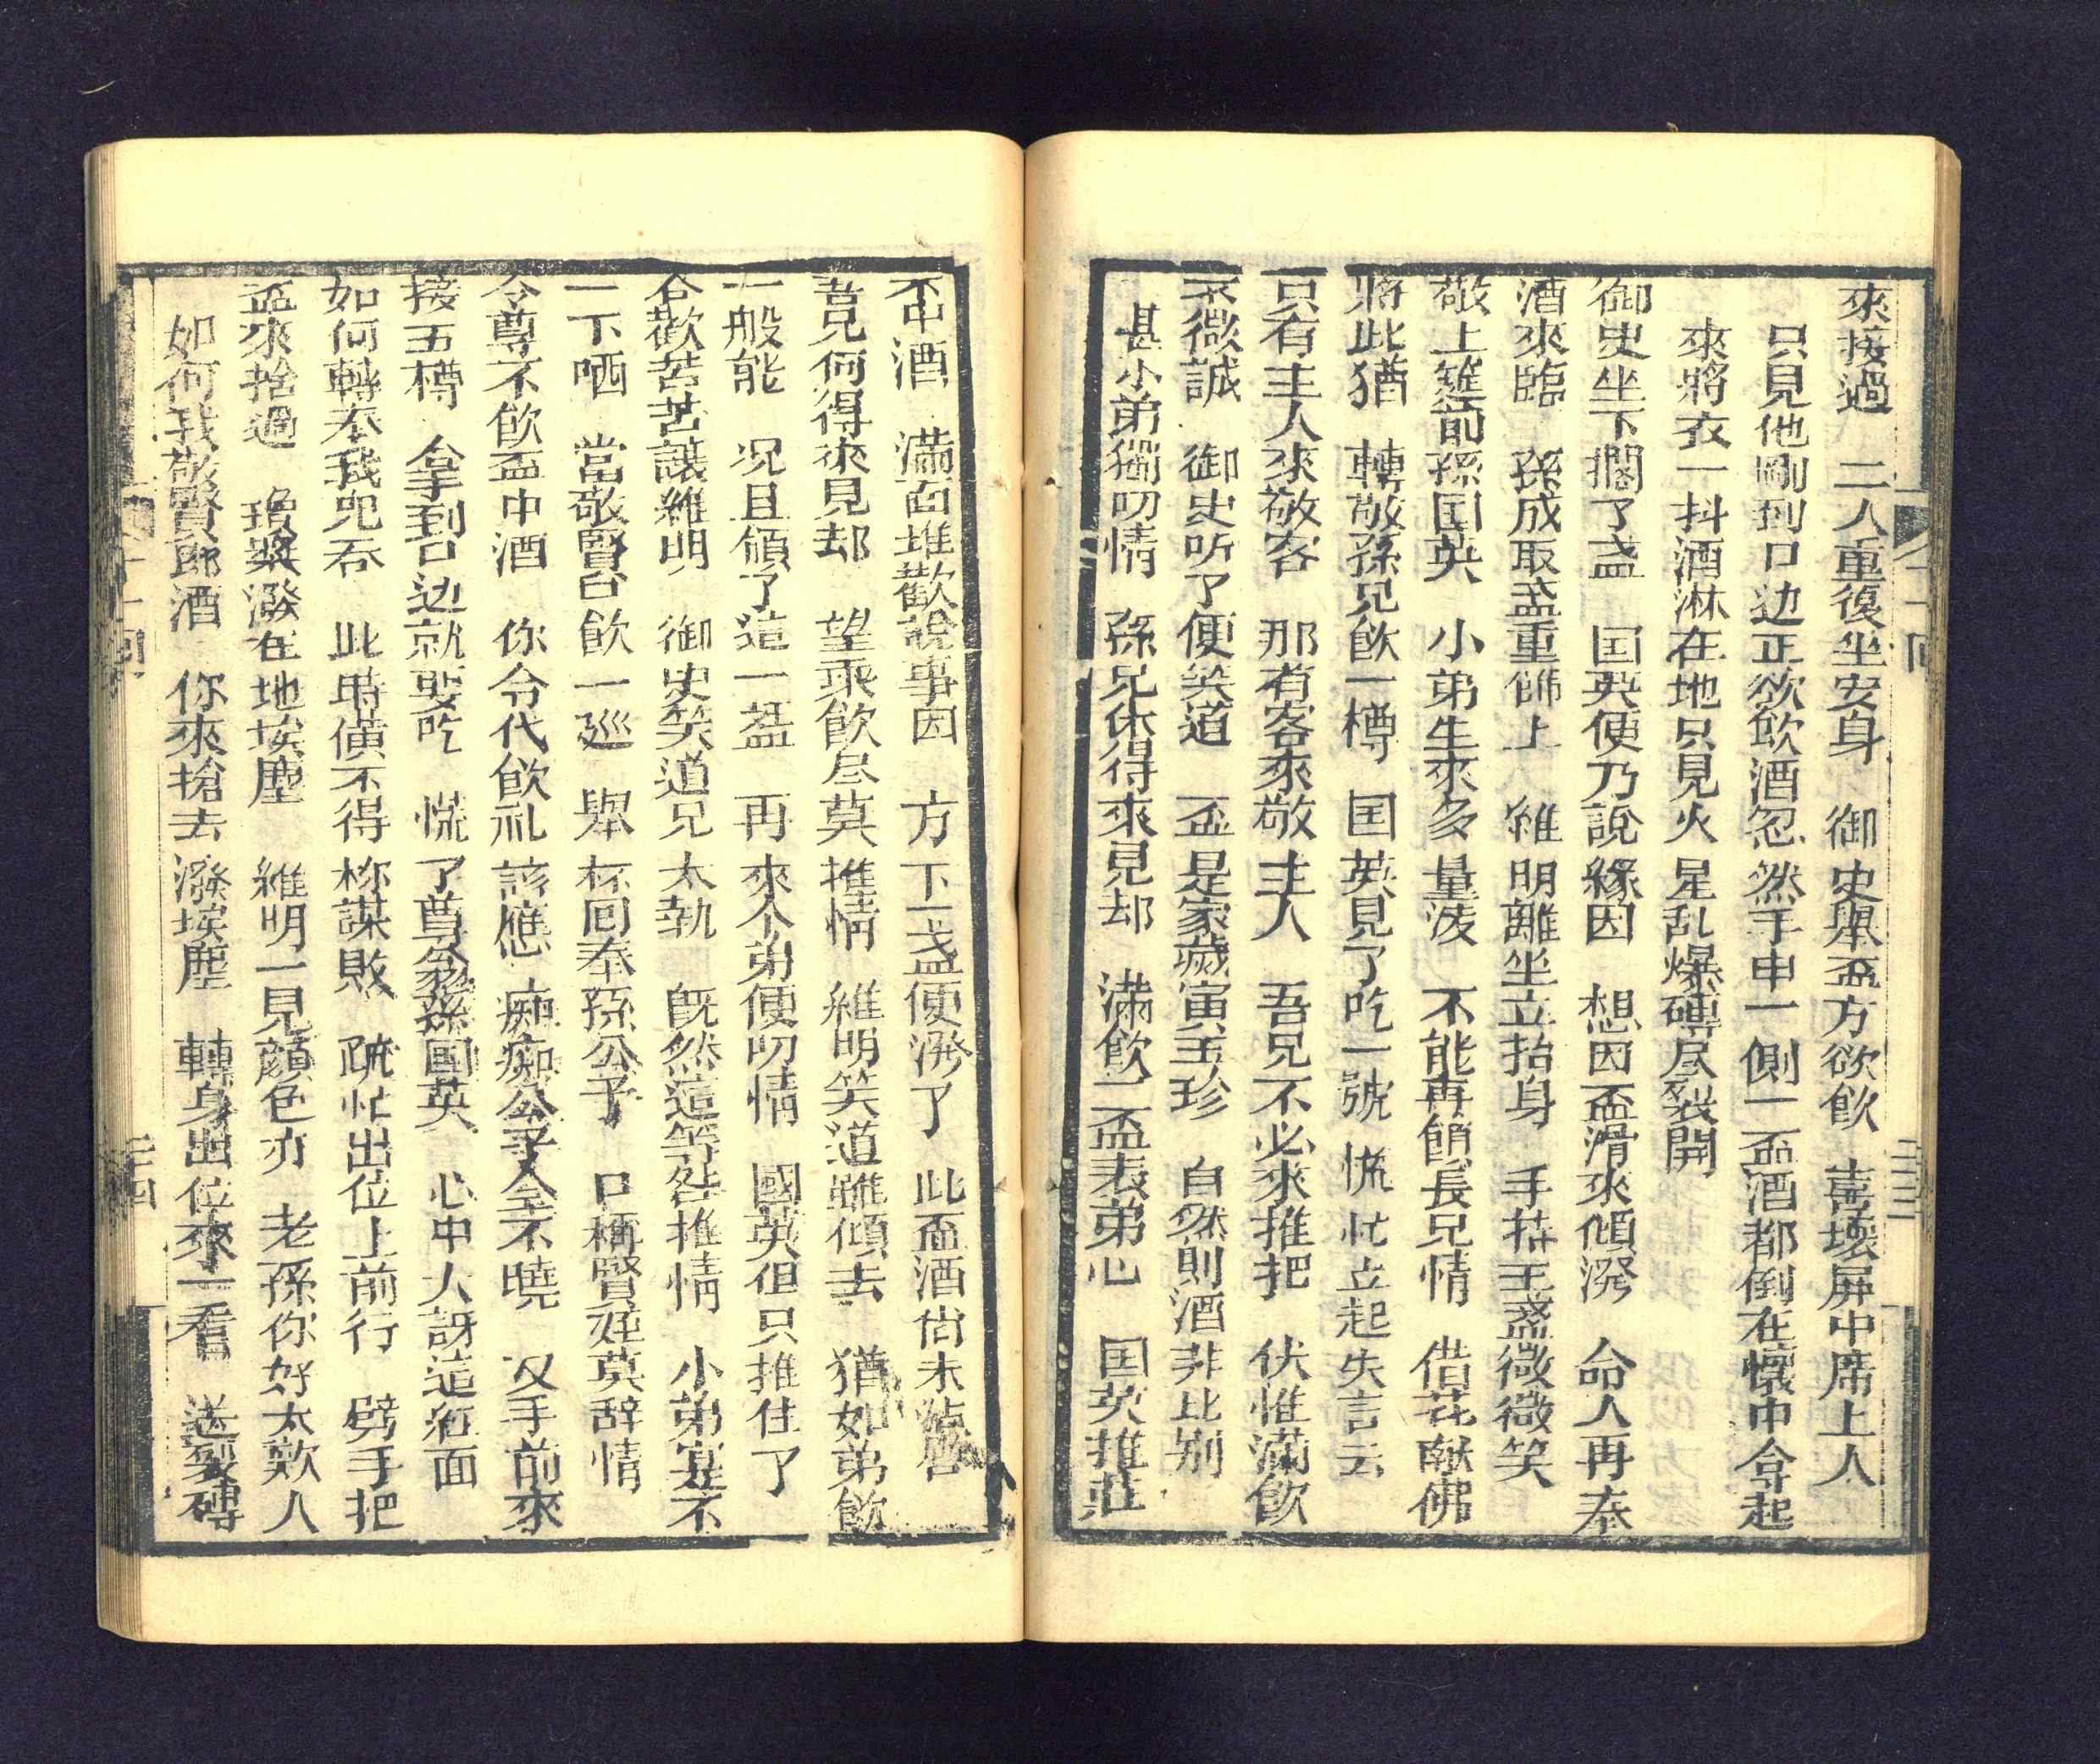 來接過　二人重復坐安身　御史舉盃方欲飲　喜壞屏中席上人
只見他剛到口边正欲飲酒忽然手中一側一盃酒都倒在懷中合起
來將衣一抖酒淋在地只見火星乱爆磚尽裂開
御史坐下擱了盞　国英便乃說緣因　想因盃滑來傾潑　命人再奉
酒來臨　孫成取盞重篩上　維明離坐立抬身　手持玉盞微微笑
敬上筵前孫国英　小弟生來多量淺　不能再飽長兄情　借花献佛
將此猶　轉敬孫兄飲一樽　国英見了吃一號　慌忙立起失言云
只有主人來敬客　那有客來敬主人　吾兄不必來推把　伏惟滿飲
一微誠　御史听了便笑道　盃是家藏寅玉珍　自然則酒非比别
甚小弟獨叨情　孫兄休得來見却　滿飲一盃表弟心　国英推莊
不中酒　滿面堆歡說事因　方下一盞便潑了　此盃酒尚未
吾兄何得來見却　望乘飲尽莫推情　維明笑道雖傾去　猶如弟飲
一般能　况且領了這一盃　再來个弟便叨情　國英但只推住了
合歡苦苦讓維明　御史笑道兄太執　既然這等咎推情　小弟寔不
一下哂　當敬賢台飲一廵　舉杯囘奉孫公子　口稱賢姪莫辞情
令尊不飲盃中酒　你令代飲礼該應　痴痴公子人全不曉　双手前來
接玉樽　拿到口边就要吃　慌了尊翁孫國英　心中人訝這红面
如何轉奉我兜吞　此時債不得称謀敗　疏忙出位上前行　劈手把
盃來捨過　瓊漿潑在地埃塵　維明一見顔色亦　老孫你好太欺人
如何我敬賢郎酒　你來搶去潑埃塵　轉身出位來一看　送裂磚